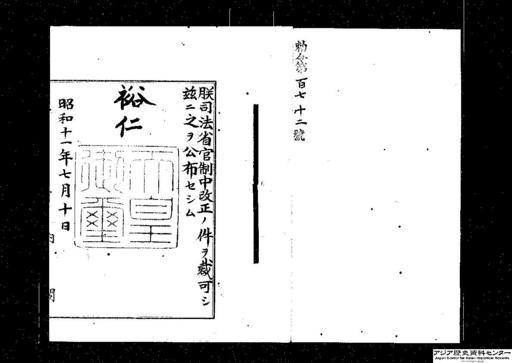 勅令第百七十二號
朕司法省官制中改正ノ件ヲ裁可シ
茲ニ之ヲ公布セシム
裕仁
天皇御璽
昭和十一年七月十日
内閣
アジア歴史資料センター
Japan Center for Asian Historical Records